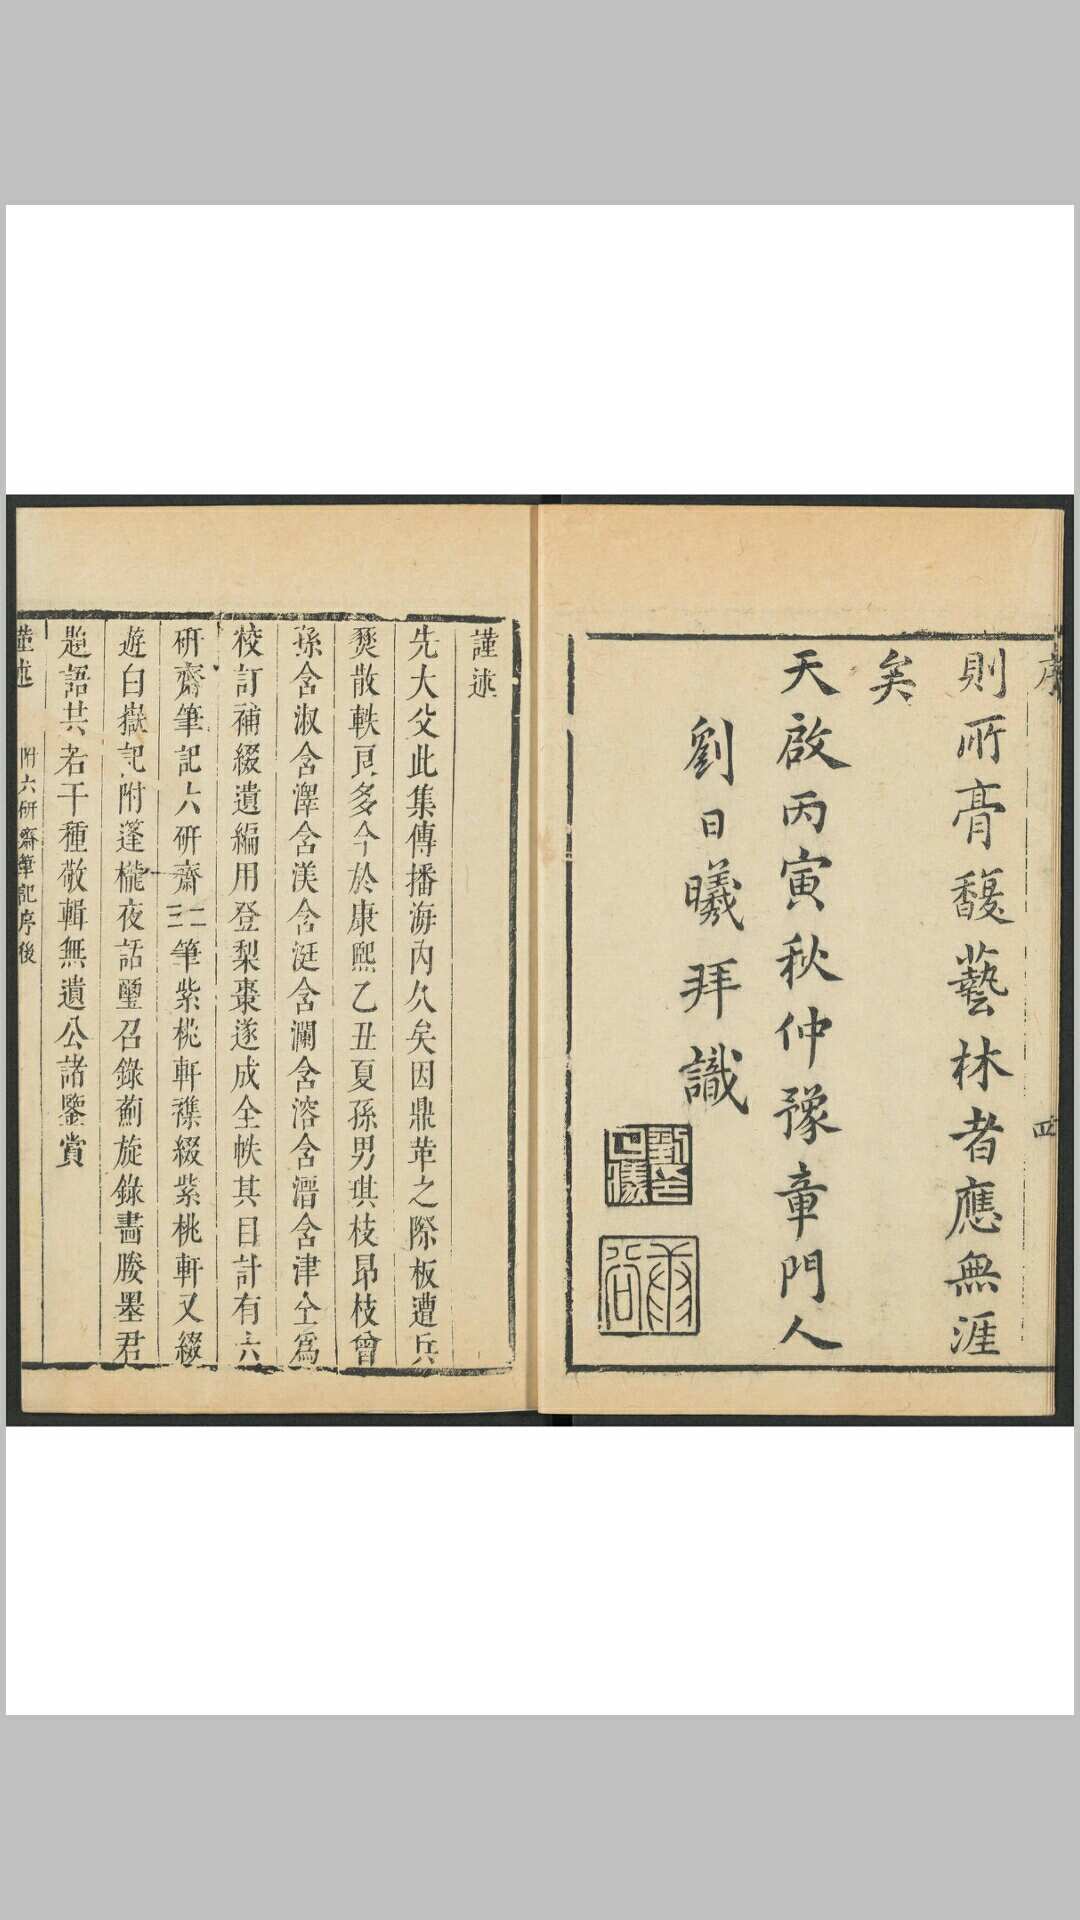 序
四
則所膏馥藝林者應無涯
矣
天啟丙寅秋仲豫章門人
劉日曦拜識
謹述
先大父此集傳播海內久矣因鼎革之際板遭兵
燹散軼頁多今於康熙乙丑夏孫男琪枝昂枝曾
孫含淑含澤含渼含涏含瀾含溶含潛含津仝為
校訂補綴遺編用登梨棗遂成全帙其目計有六
研齋筆記六研齋二三筆紫桃軒襍綴紫桃軒又綴
遊白嶽記附篷櫳夜話璽召錄薊旋錄畵媵墨君
題語共若干種敬輯無遺公諸鑒賞
謹述
附六研齋筆記序後